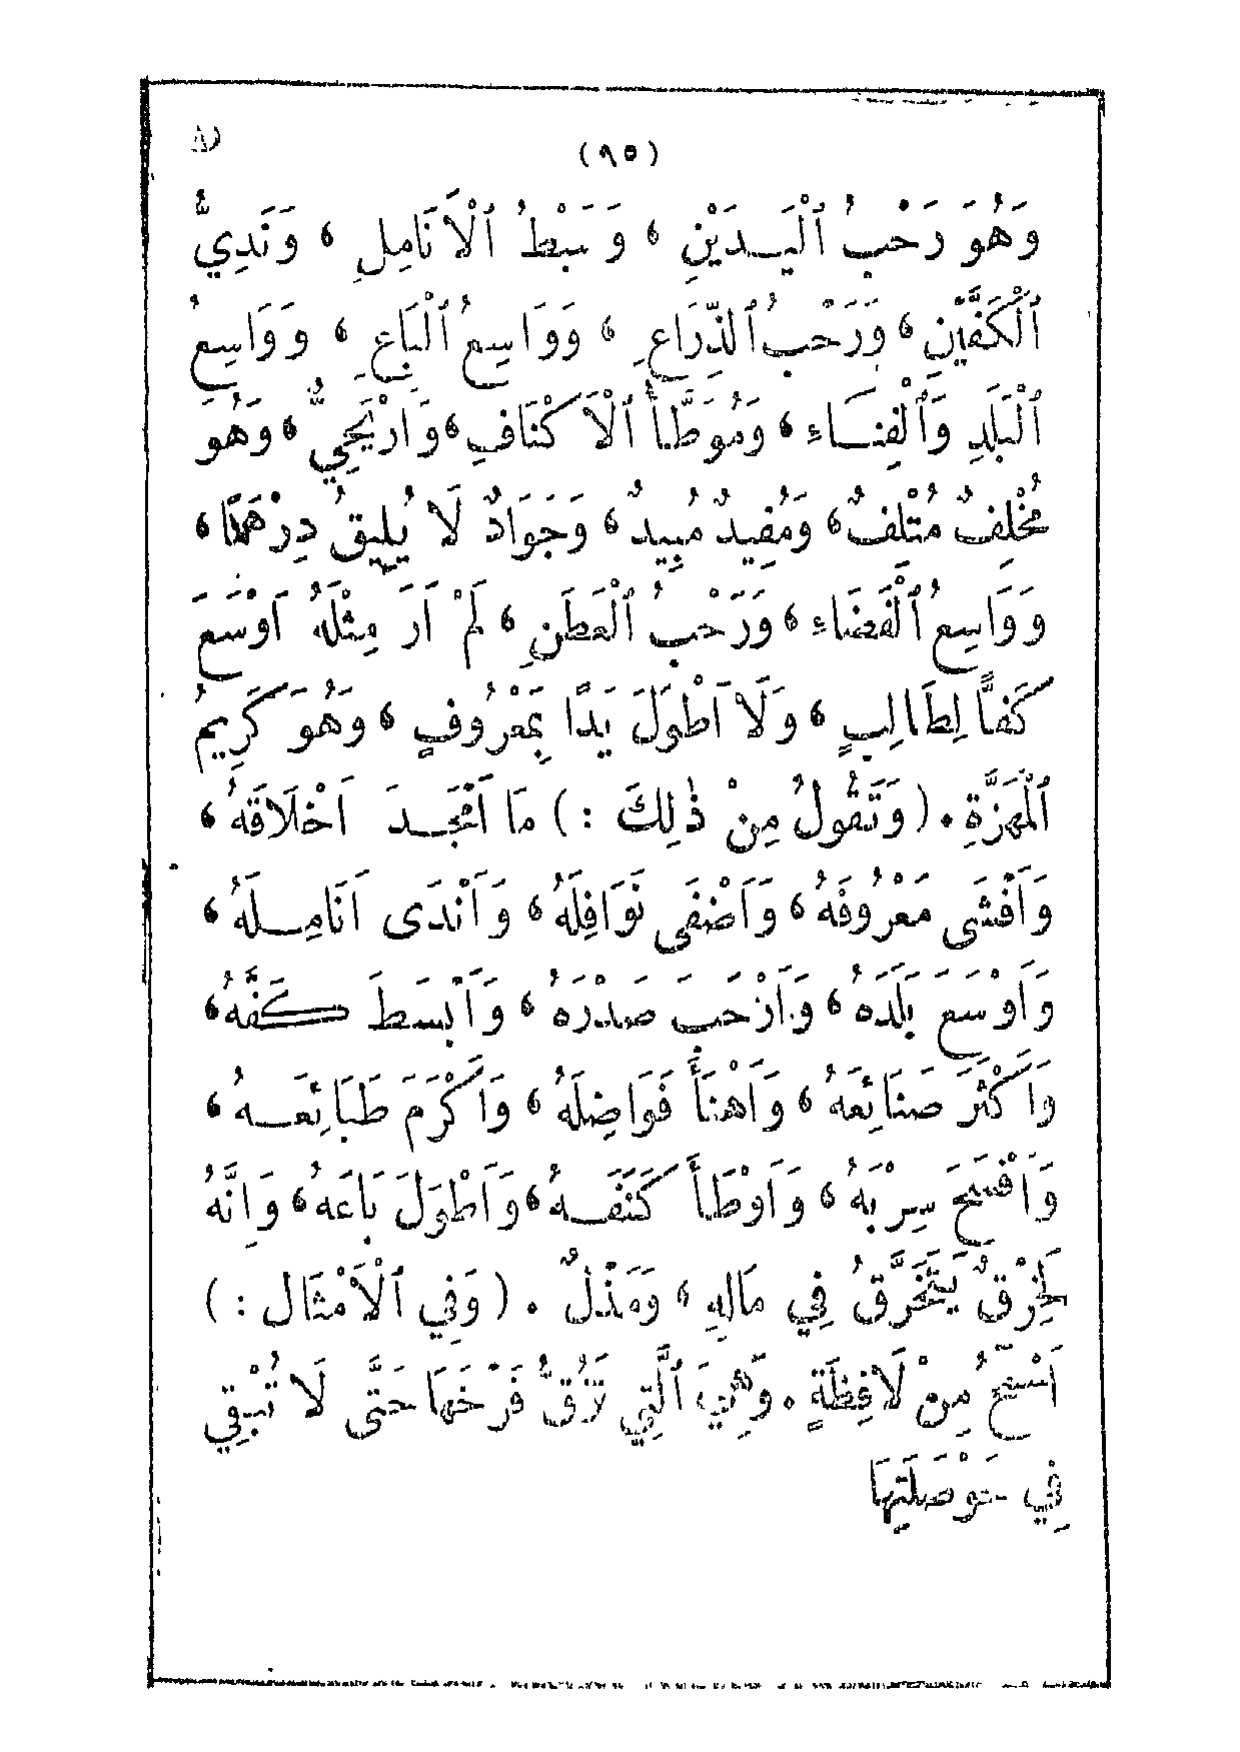 (٩٥)
وَهُوَ رَحْبُ ٱلْيَدَيْنِ ، وَسَبْطُ ٱلْأَنَامِلِ ، وَنَدِيُّ
ٱلْكَفَّيْنِ ، وَرَحْبُ ٱلذِّرَاعِ ، وَوَاسِعُ ٱلْبَاعِ ، وَوَاسِعُ
ٱلْبَلَدِ وَٱلْفِنَاءِ ، وَمُوَطَّأُ ٱلْأَكْنَافِ ، وَأَرْيَحِيٌّ ، وَهُوَ
مُخْلِفٌ مُتْلِفٌ ، وَمُفِيدٌ مُبِيدٌ ، وَجَوَادٌ لَا يُلِيقُ دِرْهَمًا ،
وَوَاسِعُ ٱلْفَضَاءِ ، وَرَحْبُ ٱلْعَطَنِ ، لَمْ أَرَ مِثْلَهُ أَوْسَعَ
كَفًّا لِطَالِبٍ ، وَلَا أَطْوَلَ يَدًا بِمَعْرُوفٍ ، وَهُوَ كَرِيمُ
ٱلْمَهَزَّةِ . (وَتَقُولُ مِنْ ذٰلِكَ :) مَا أَمْجَدَ أَخْلَاقَهُ ،
وَأَفْشَى مَعْرُوفَهُ ، وَأَضْفَى نَوَافِلَهُ ، وَأَنْدَى أَنَامِلَهُ ،
وَأَوْسَعَ بَلَدَهُ ، وَأَرْحَبَ صَدْرَهُ ، وَأَبْسَطَ كَفَّهُ ،
وَأَكْثَرَ صَنَائِعَهُ ، وَأَهْنَأَ فَوَاضِلَهُ ، وَأَكْرَمَ طَبَائِعَهُ ،
وَأَفْسَحَ سِرْبَهُ ، وَأَوْطَأَ كَنَفَهُ ، وَأَطْوَلَ بَاعَهُ ، وَإِنَّهُ
لَخِرْقٌ يَتَخَرَّقُ فِي مَالِهِ ، وَمَذْلٌ . (وَفِي ٱلْأَمْثَالِ :)
أَسْمَحُ مِنْ لَافِظَةٍ . وَهِيَ ٱلَّتِي تَزُقُّ فَرْخَهَا حَتَّى لَا تُبْقِي
فِي حَوْصَلَتِهَا